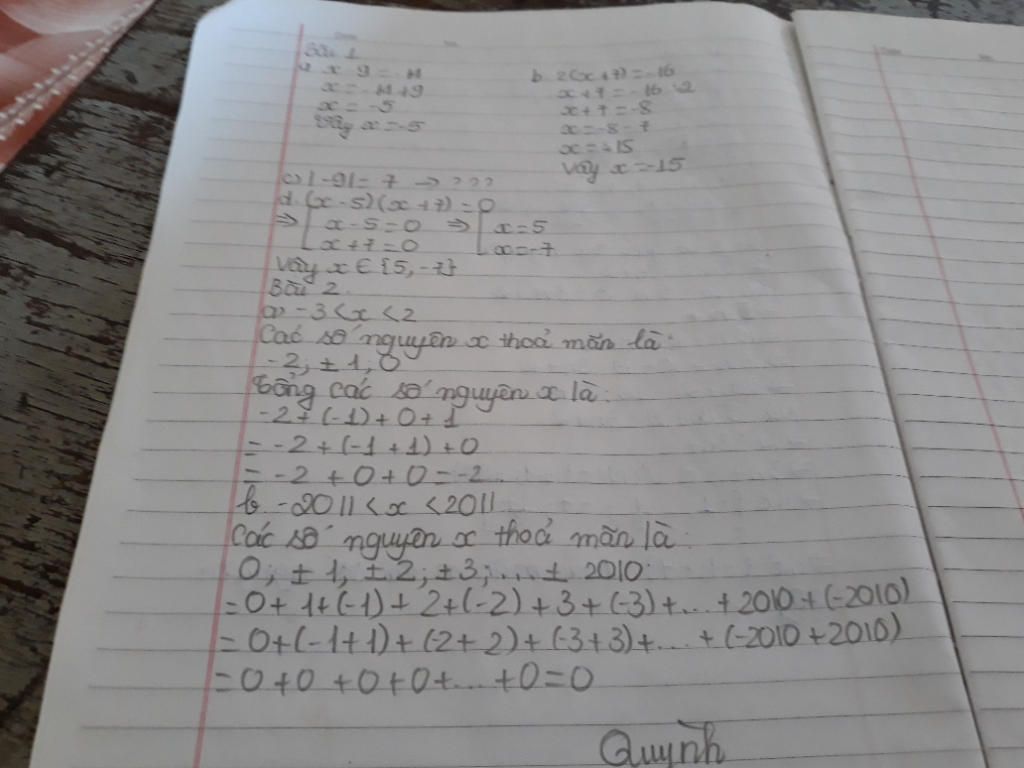 Bài 1
x 9 = -14
x = -14+9
x = -5
Vậy x = -5
b. 2(x+7) = -16
x+7 = -16 :2
x+7 = -8
x = -8-7
x = -15
Vậy x = -15
c) |-9| = 7 → ???
d. (x-5)(x+7) = 0
⇒ [ x-5=0 ⇒ [ x=5
x+7=0 x=-7
Vậy x ∈ {5, -7}
Bài 2
a) -3 < x < 2
Các số nguyên x thoả mãn là:
-2; ±1, 0
Tổng các số nguyên x là:
-2 + (-1) + 0 + 1
= -2 + (-1 + 1) + 0
= -2 + 0 + 0 = -2
b. -2011 < x < 2011
Các số nguyên x thoả mãn là:
0; ±1; ±2; ±3; ... ± 2010
= 0 + 1 + (-1) + 2 + (-2) + 3 + (-3) + ... + 2010 + (-2010)
= 0 + (-1+1) + (-2+2) + (-3+3) + ... + (-2010 + 2010)
= 0 + 0 + 0 + 0 + ... + 0 = 0
Quỳnh